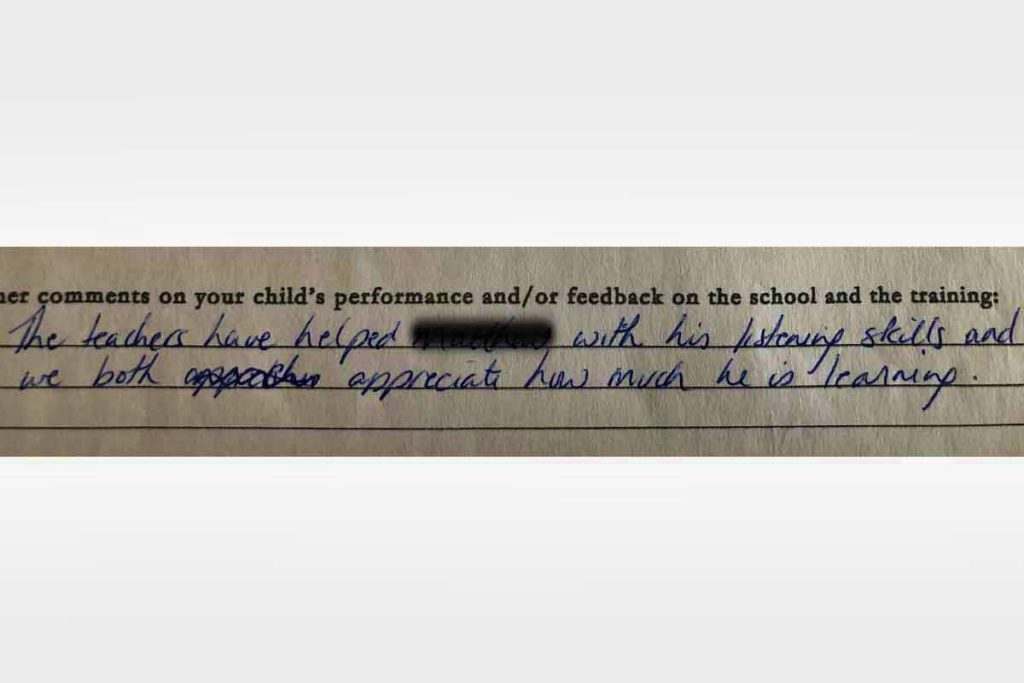 her comments on your child's performance and/or feedback on the school and the training:
The teachers have helped with his listening skills and
we both appreciate how much he is learning.